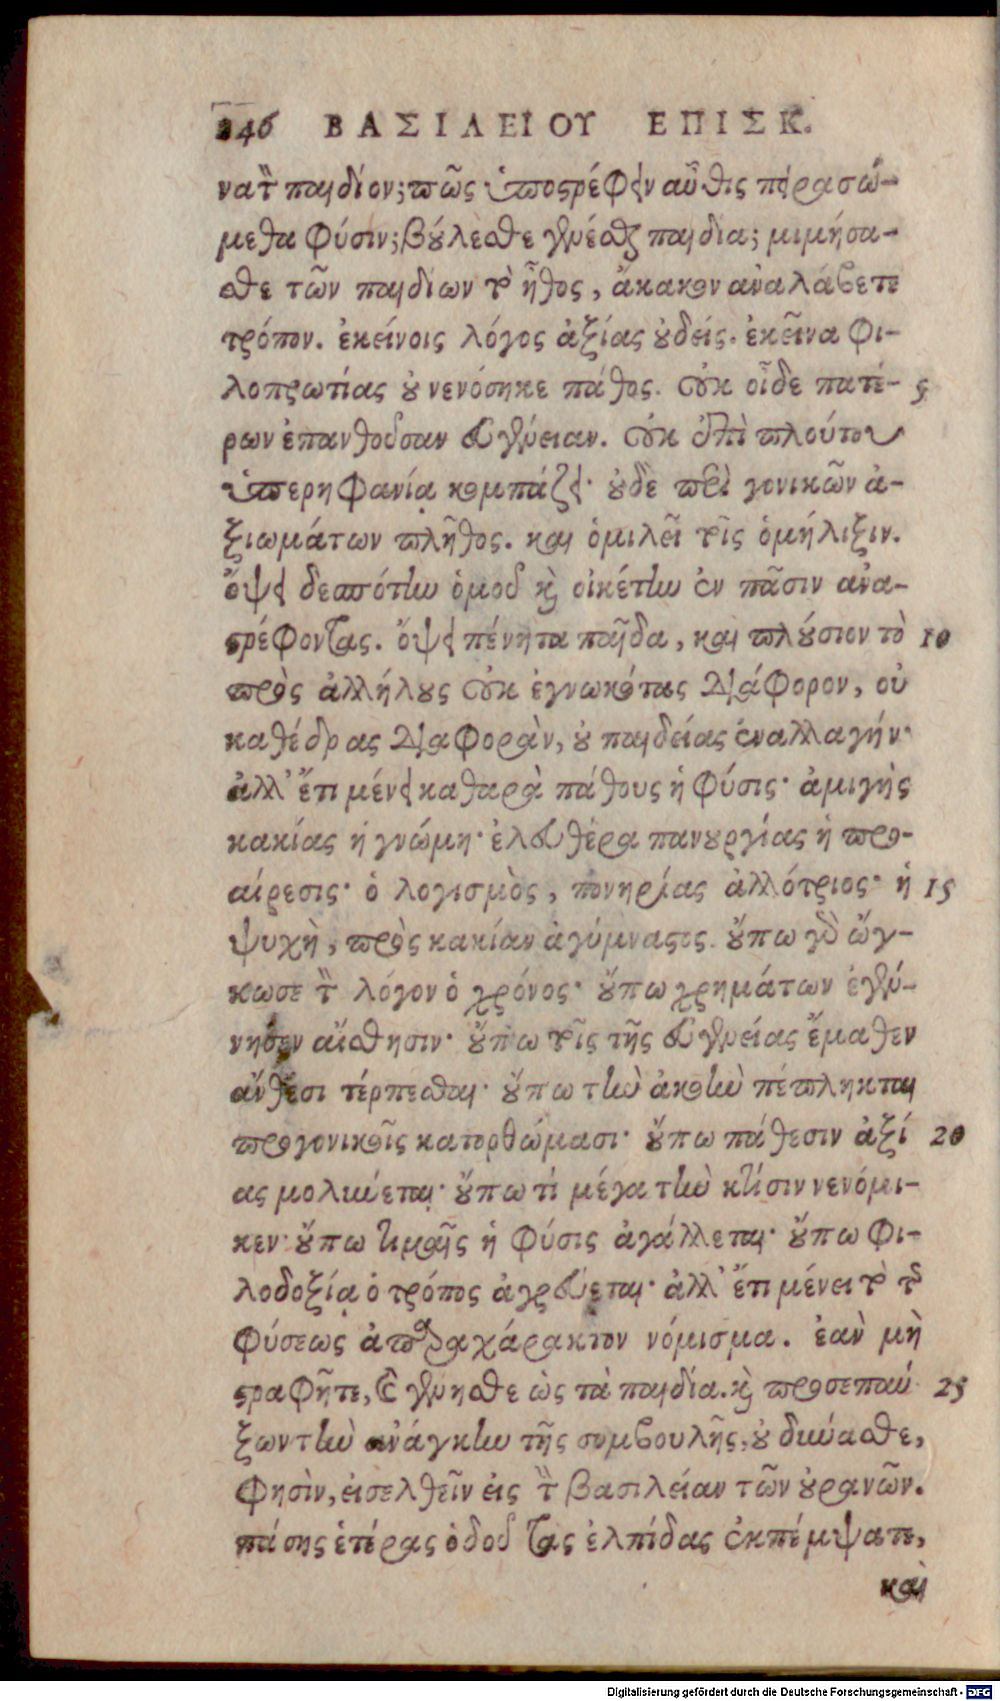 246 ΒΑΣΙΛΕΙΟΥ ΕΠΙΣΚ.
να τὸ παιδίον; πῶς ὑποστρέφειν αὖθις πειρασώ-
μεθα φύσιν; βούλεσθε γενέσθαι παιδία; μιμήσα-
σθε τῶν παιδίων τὸ ἦθος, ἄκακον ἀναλάβετε
τρόπον. ἐκείνοις λόγος ἀξίας οὐδείς. ἐκεῖνα φι-
λοπρωτίας οὐ νενόσηκε πάθος. οὐκ οἶδε πατέ- 5
ρων ἐπανθοῦσαν εὐγένειαν. οὐκ ἐπὶ πλούτου
ὑπερηφανίᾳ κομπάζει· οὐδὲ περὶ γονικῶν ἀ-
ξιωμάτων πλῆθος. καὶ ὁμιλεῖ τοῖς ὁμήλιξιν.
ὄψει δεσπότην ὁμοῦ καὶ οἰκέτην ἐν πᾶσιν ἀνα-
στρέφοντας. ὄψει πένητα παῖδα, καὶ πλούσιον τὸ 10
πρὸς ἀλλήλους οὐκ ἐγνωκότας διάφορον, οὐ
καθέδρας διαφορὰν, οὐ παιδείας ἐναλλαγήν·
ἀλλ' ἔτι μένει καθαρὰ πάθους ἡ φύσις· ἀμιγὴς
κακίας ἡ γνώμη· ἐλευθέρα πανουργίας ἡ προ-
αίρεσις· ὁ λογισμὸς, πονηρίας ἀλλότριος· ἡ 15
ψυχὴ, πρὸς κακίαν ἀγύμναστος. οὔπω γὰρ ὤγ-
κωσε τὸν λόγον ὁ χρόνος· οὔπω χρημάτων ἐγέν-
νησεν αἴσθησιν· οὔπω τοῖς τῆς εὐγενείας ἔμαθεν
ἄνθεσι τέρπεσθαι· οὔπω τὴν ἀκοὴν πέπληκται
προγονικοῖς κατορθώμασι· οὔπω πάθεσιν ἀξί 20
ας μολύνεται· οὔπω τὶ μέγα τὴν κτίσιν νενόμι-
κεν· οὔπω τιμαῖς ἡ φύσις ἀγάλλεται· οὔπω φι-
λοδοξίᾳ ὁ τρόπος ἀχρεύεται· ἀλλ' ἔτι μένει τὸ τῆς
φύσεως ἀπαραχάρακτον νόμισμα. ἐὰν μὴ
στραφῆτε, καὶ γένησθε ὡς τὰ παιδία. καὶ προσεπαύ 25
ξων τὴν ἀνάγκην τῆς συμβουλῆς, οὐ δύνασθε,
φησὶν, εἰσελθεῖν εἰς τὴν βασιλείαν τῶν οὐρανῶν.
πάσης ἑτέρας ὁδοῦ τὰς ἐλπίδας ἐκπέμψατε,
καὶ
Digitalisierung gefördert durch die Deutsche Forschungsgemeinschaft - DFG